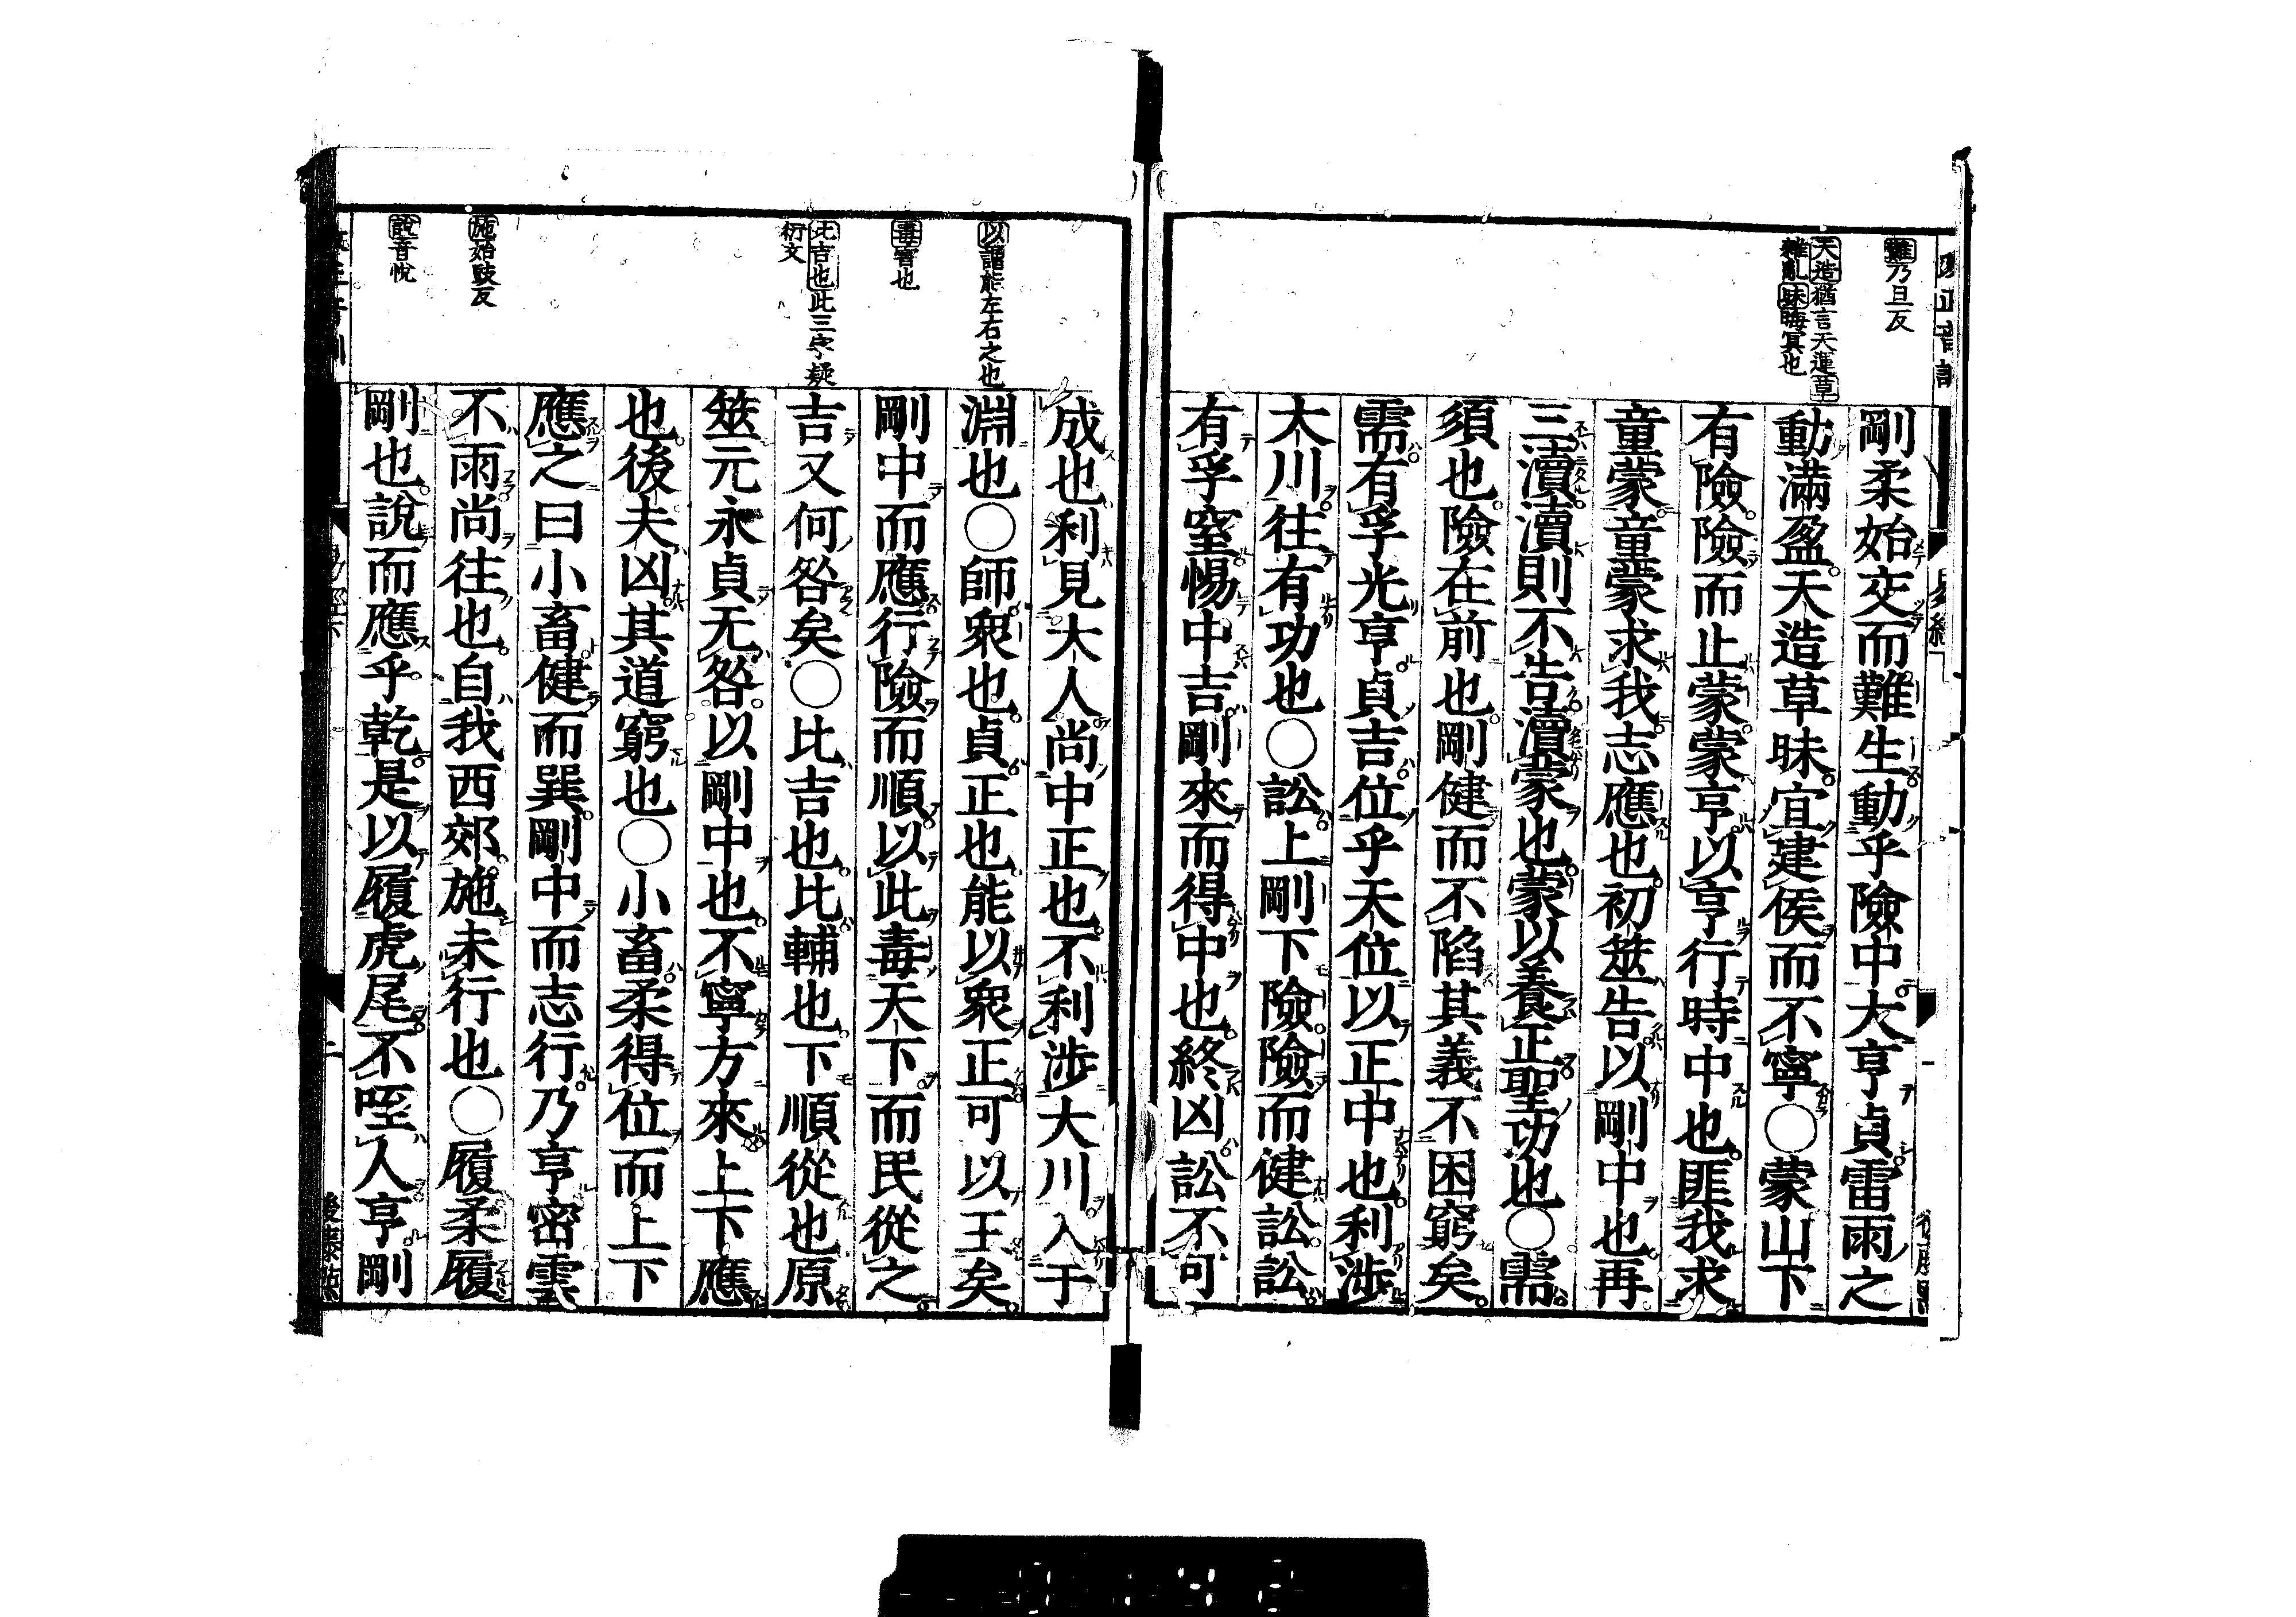 難乃旦反
天造猶言天運草
雜亂昧晦冥也
剛柔始交而難生動乎險中大亨貞雷雨之
動滿盈天造草昧宜建侯而不寧○蒙山下
有險險而止蒙蒙亨以亨行時中也匪我求
童蒙童蒙求我志應也初筮告以剛中也再
三瀆瀆則不告瀆蒙也蒙以養正聖功也○需
須也險在前也剛健而不陷其義不困窮矣
需有孚光亨貞吉位乎天位以正中也利涉
大川往有功也○訟上剛下險險而健訟訟
有孚窒惕中吉剛來而得中也終凶訟不可
以謂能左右之也
毒害也
比吉也此三字疑
衍文
施始豉反
說音悅
成也利見大人尚中正也不利涉大川入于
淵也○師衆也貞正也能以衆正可以王矣
剛中而應行險而順以此毒天下而民從之
吉又何咎矣○比吉也比輔也下順從也原
筮元永貞无咎以剛中也不寧方來上下應
也後夫凶其道窮也○小畜柔得位而上下
應之曰小畜健而巽剛中而志行乃亨密雲
不雨尚往也自我西郊施未行也○履柔履
剛也說而應乎乾是以履虎尾不咥人亨剛